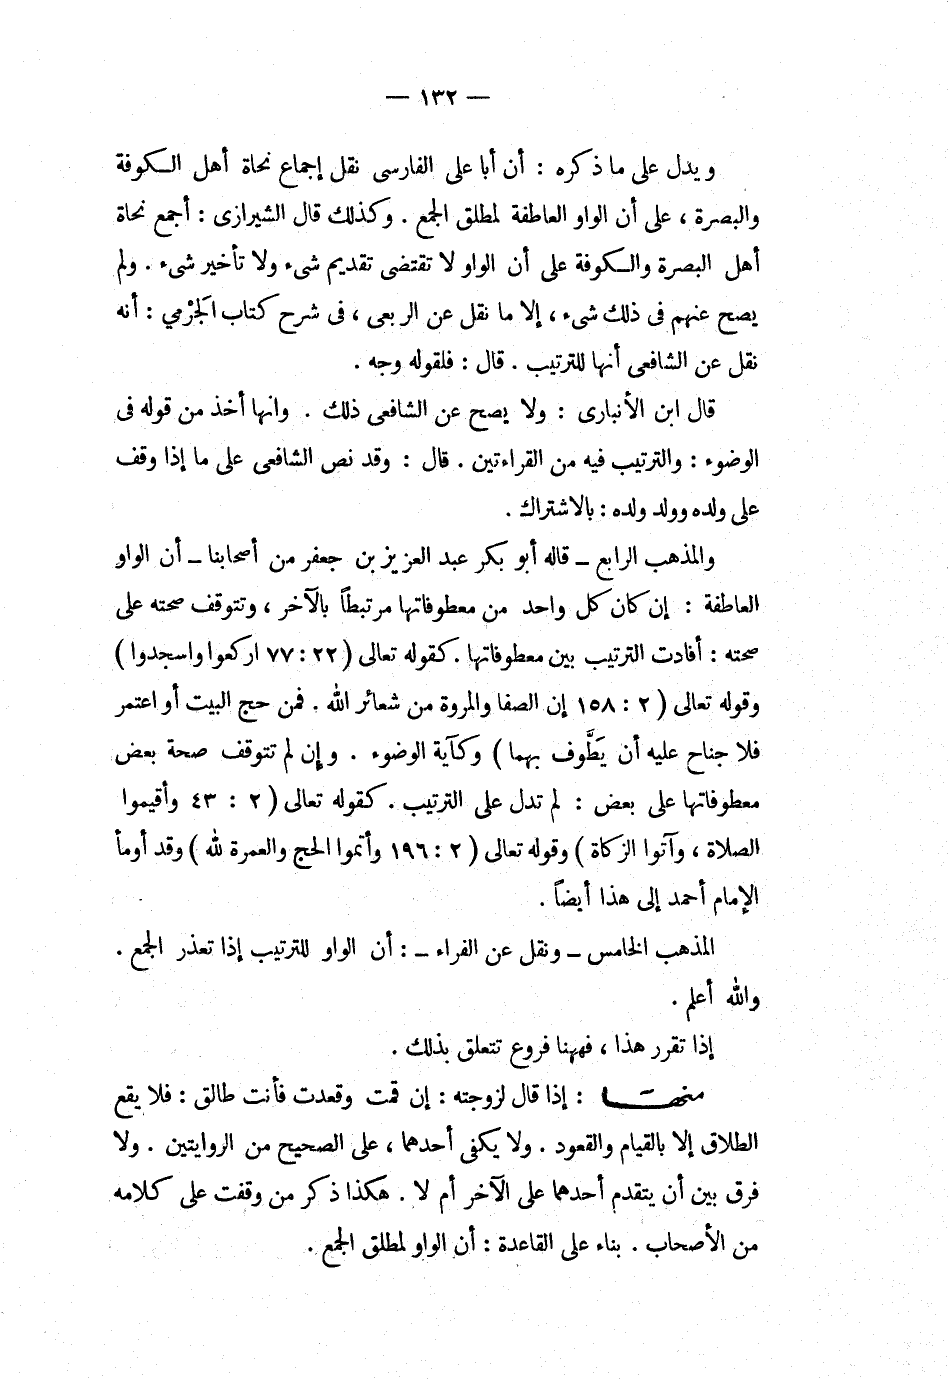 — ١٣٢ —
ويدل على ما ذكره : أن أبا على الفارسى نقل إجماع نحاة أهل الكوفة
والبصرة ، على أن الواو العاطفة لمطلق الجمع . وكذلك قال الشيرازى : أجمع نحاة
أهل البصرة والكوفة على أن الواو لا تقتضى تقديم شىء ولا تأخير شىء . ولم
يصح عنهم فى ذلك شىء ، إلا ما نقل عن الربعى ، فى شرح كتاب الجَرْمي : أنه
نقل عن الشافعى أنها للترتيب . قال : فلقوله وجه .
قال ابن الأنبارى : ولا يصح عن الشافعى ذلك . وانها أخذ من قوله فى
الوضوء : والترتيب فيه من القراءتين . قال : وقد نص الشافعى على ما إذا وقف
على ولده وولد ولده : بالاشتراك .
والمذهب الرابع ــ قاله أبو بكر عبد العزيز بن جعفر من أصحابنا ــ أن الواو
العاطفة : إن كان كل واحد من معطوفاتها مرتبطاً بالآخر ، وتتوقف صحته على
صحته : أفادت الترتيب بين معطوفاتها . كقوله تعالى ( ٢٢ : ٧٧ اركعوا واسجدوا )
وقوله تعالى ( ٢ : ١٥٨ إن الصفا والمروة من شعائر الله . فمن حج البيت أو اعتمر
فلا جناح عليه أن يَطَّوف بهما ) وكآية الوضوء . وإن لم تتوقف صحة بعض
معطوفاتها على بعض : لم تدل على الترتيب . كقوله تعالى ( ٢ : ٤٣ وأقيموا
الصلاة ، وآتوا الزكاة ) وقوله تعالى ( ٢ : ١٩٦ وأتموا الحج والعمرة لله ) وقد أومأ
الإمام أحمد إلى هذا أيضاً .
المذهب الخامس ــ ونقل عن الفراء ــ : أن الواو للترتيب إذا تعذر الجمع .
والله أعلم .
إذا تقرر هذا ، فههنا فروع تتعلق بذلك .
منها : إذا قال لزوجته : إن قمت وقعدت فأنت طالق : فلا يقع
الطلاق إلا بالقيام والقعود . ولا يكفى أحدهما ، على الصحيح من الروايتين . ولا
فرق بين أن يتقدم أحدهما على الآخر أم لا . هكذا ذكر من وقفت على كلامه
من الأصحاب . بناء على القاعدة : أن الواو لمطلق الجمع .